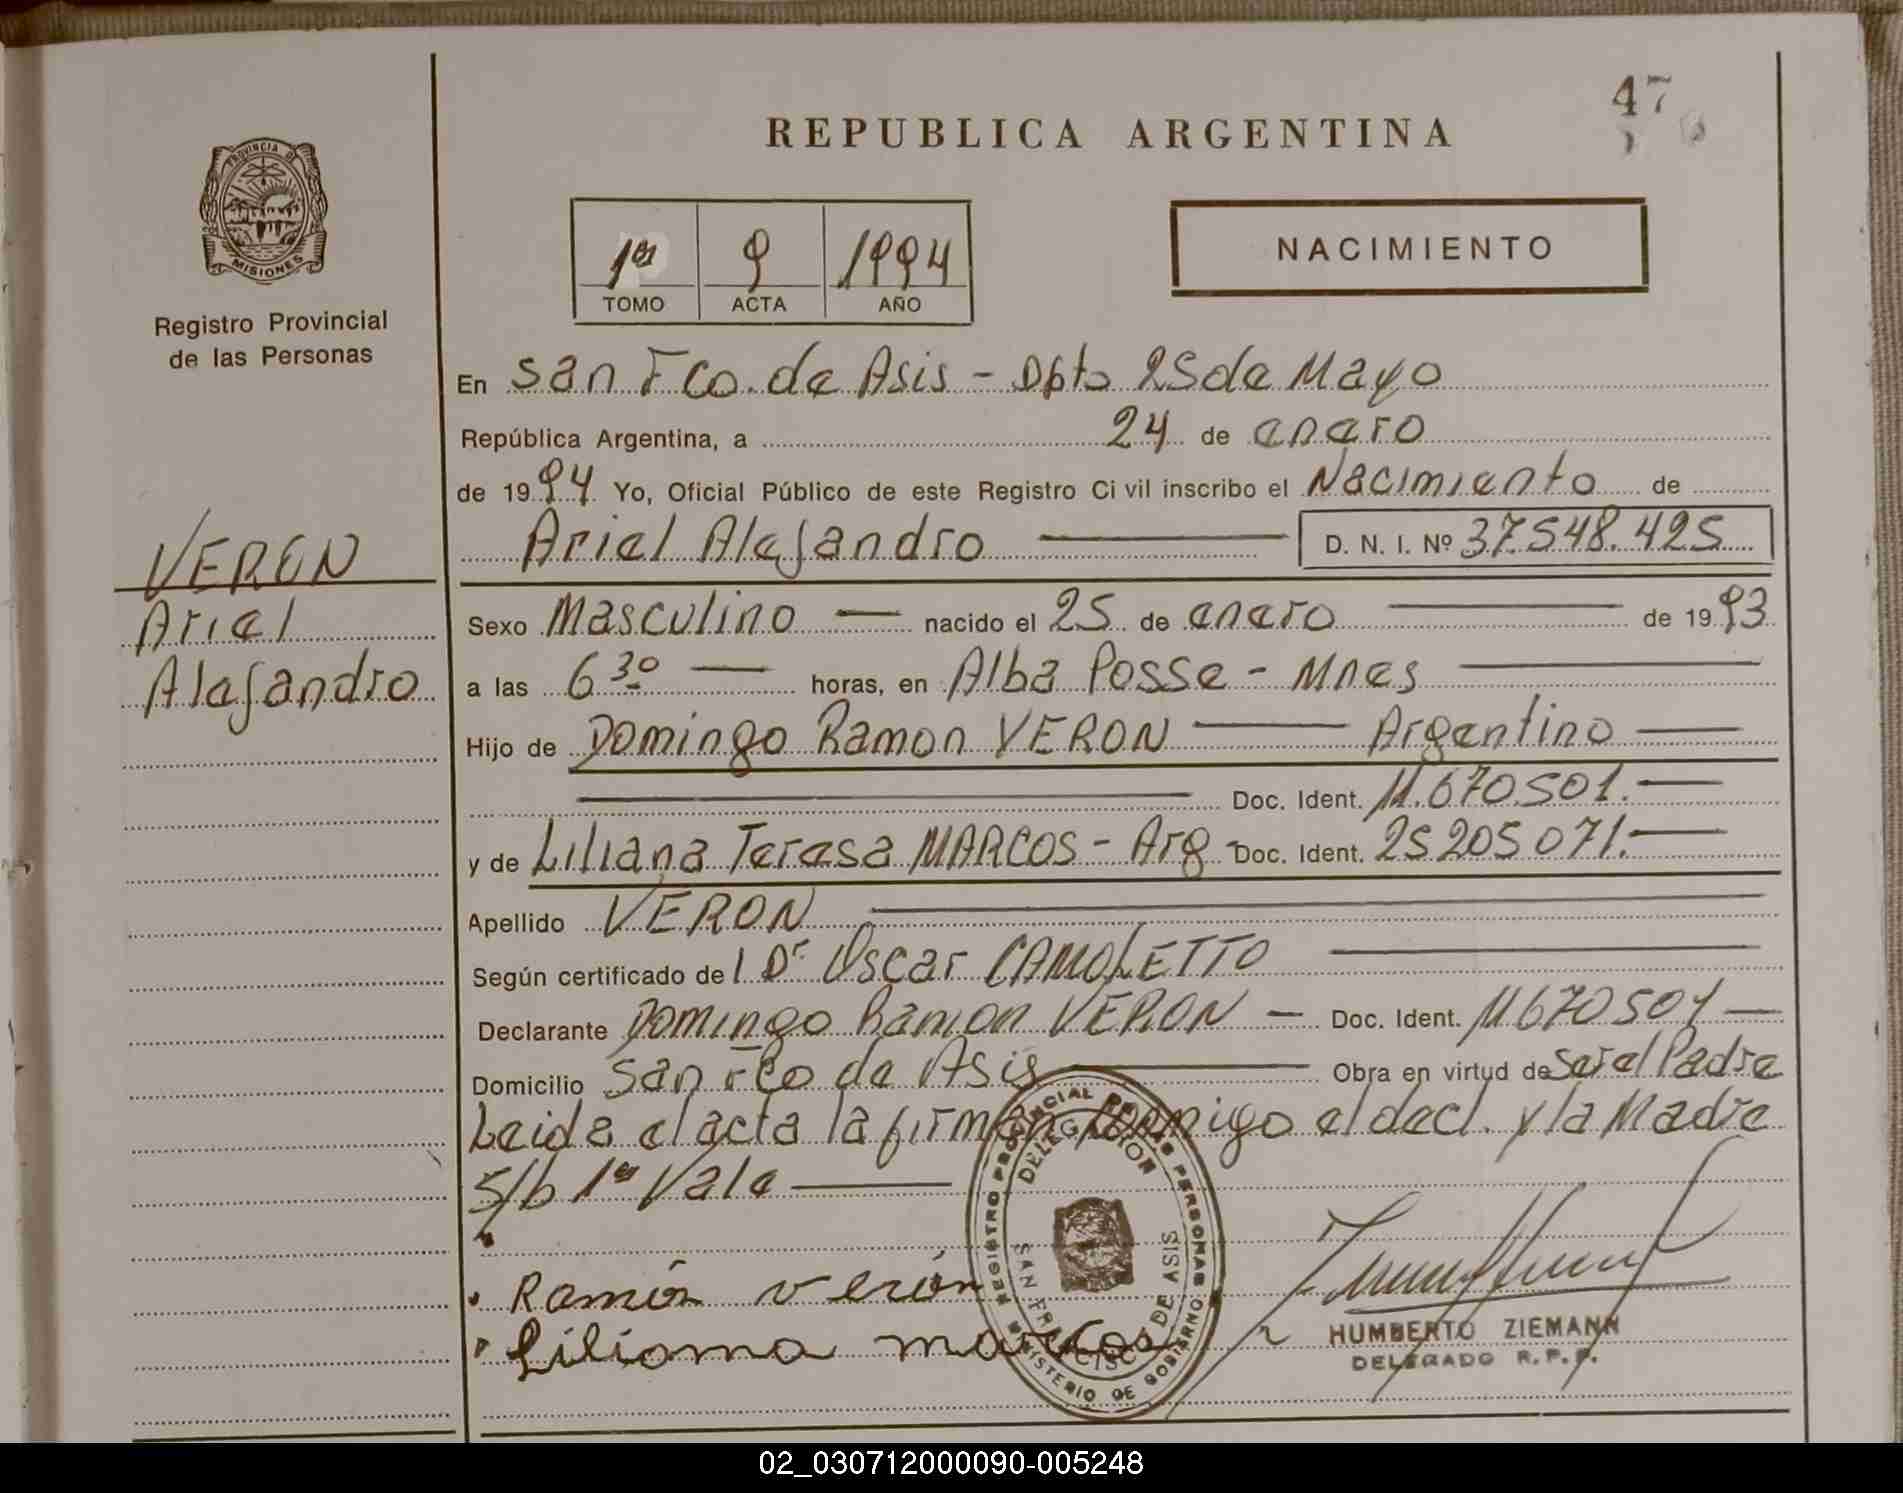 47
REPUBLICA ARGENTINA
PROVINCIA DE
MISIONES
Registro Provincial
de las Personas
1er 9 1994
TOMO ACTA AÑO
NACIMIENTO
En San Fco. de Asis - Dpto 25 de Mayo
República Argentina, a 24 de enero
de 1994 Yo, Oficial Público de este Registro Civil inscribo el Nacimiento de
Ariel Alejandro D. N. I. Nº 37.548.425
VERON
Ariel
Alejandro
Sexo Masculino nacido el 25 de enero de 1993
a las 6 30 horas, en Alba Posse - Mnes
Hijo de Domingo Ramon VERON Argentino
Doc. Ident. 11.670.501.
y de Liliana Teresa MARCOS - Arg Doc. Ident. 25205071.
Apellido VERON
Según certificado del Dr. Oscar CAMOLETTO
Declarante Domingo Ramon VERON Doc. Ident. 11670501
Domicilio San Fco de Asis Obra en virtud de Ser el Padre
Leida el acta la firman conmigo el decl. y la Madre
S/b 1er Vale
Ramón verón
Liliana marcos
REGISTRO PROVINCIAL DE LAS PERSONAS
DELEGACION
SAN FRANCISCO DE ASIS
MINISTERIO DE GOBIERNO
HUMBERTO ZIEMANN
DELEGADO R.P.P.
02_030712000090-005248